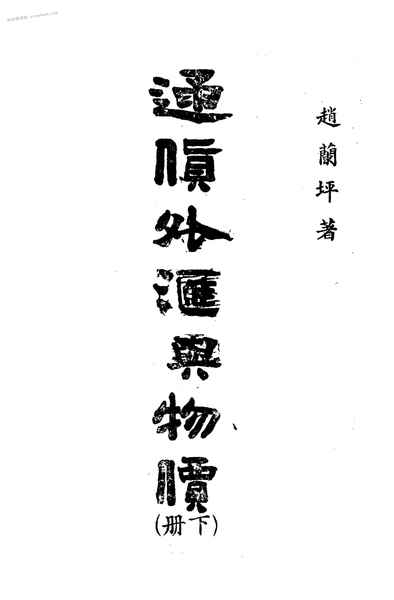 趙蘭坪著
通貨外滙與物價
(下册)